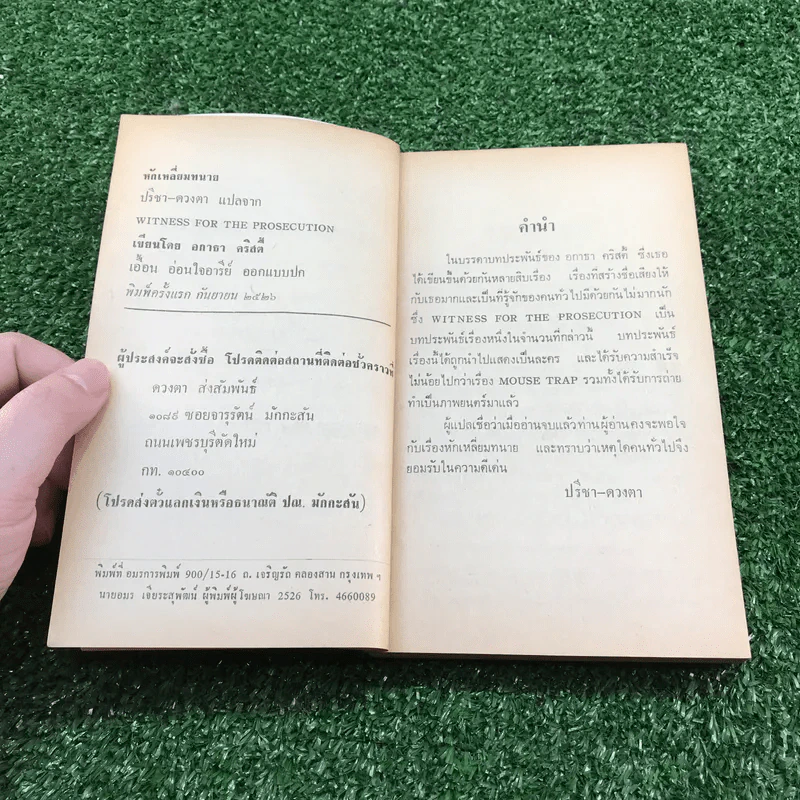 หักเหลี่ยมทนาย
ปรีชา-ดวงตา แปลจาก
WITNESS FOR THE PROSECUTION
เขียนโดย อกาธา คริสตี้
เอื้อน อ่อนใจอารีย์ ออกแบบปก
พิมพ์ครั้งแรก กันยายน ๒๕๒๖
ผู้ประสงค์จะสั่งซื้อ โปรดติดต่อสถานที่ติดต่อชั่วคราวที่
ดวงตา ส่งสัมพันธ์
๑๐๘๙ ซอยจารุรัตน์ มักกะสัน
ถนนเพชรบุรีตัดใหม่
กท. ๑๐๔๐๐
(โปรดส่งตั๋วแลกเงินหรือธนาณัติ ปณ. มักกะสัน)
พิมพ์ที่ อมรการพิมพ์ 900/15-16 ถ. เจริญรัถ คลองสาน กรุงเทพ ฯ
นายอมร เจียระสุพัฒน์ ผู้พิมพ์ผู้โฆษณา 2526 โทร. 4660089
คำนำ
ในบรรดาบทประพันธ์ของ อกาธา คริสตี้ ซึ่งเธอ
ได้เขียนขึ้นด้วยกันหลายสิบเรื่อง เรื่องที่สร้างชื่อเสียงให้
กับเธอมากและเป็นที่รู้จักของคนทั่วไปมีด้วยกันไม่มากนัก
ซึ่ง WITNESS FOR THE PROSECUTION เป็น
บทประพันธ์เรื่องหนึ่งในจำนวนที่กล่าวนี้ บทประพันธ์
เรื่องนี้ได้ถูกนำไปแสดงเป็นละคร และได้รับความสำเร็จ
ไม่น้อยไปกว่าเรื่อง MOUSE TRAP รวมทั้งได้รับการถ่าย
ทำเป็นภาพยนตร์มาแล้ว
ผู้แปลเชื่อว่าเมื่ออ่านจบแล้วท่านผู้อ่านคงจะพอใจ
กับเรื่องหักเหลี่ยมทนาย และทราบว่าเหตุใดคนทั่วไปจึง
ยอมรับในความดีเด่น
ปรีชา-ดวงตา